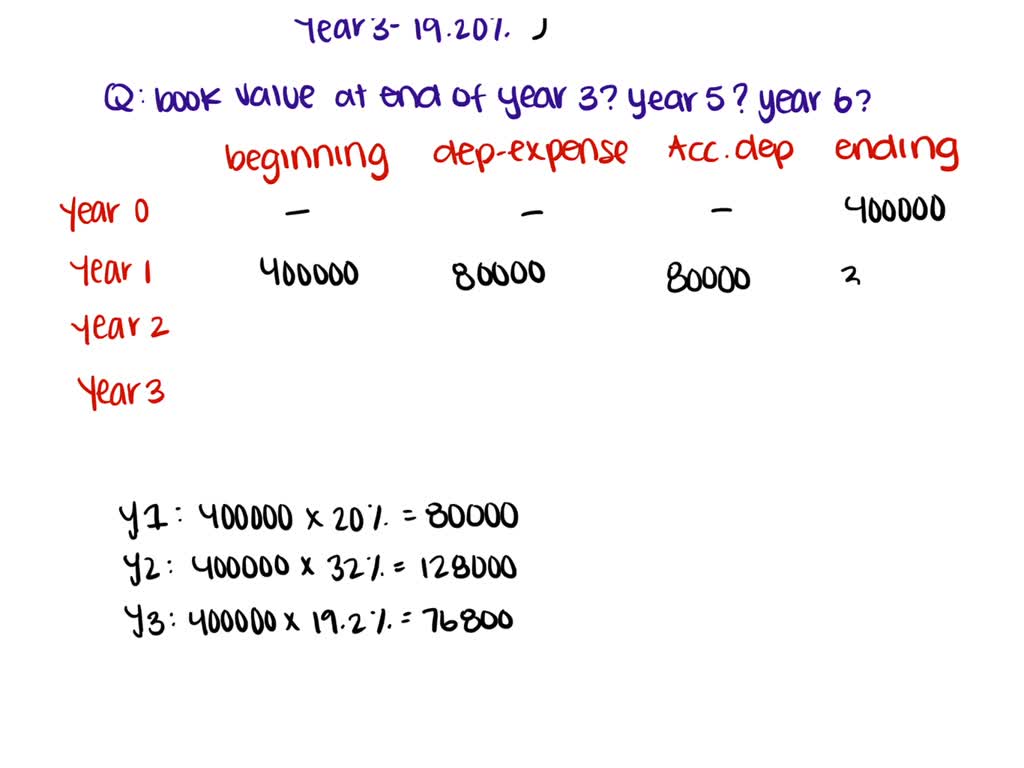 Year 3- 19.20%.
Q: book value at end of year 3? year 5? year 6?
beginning dep-expense Acc. dep ending
Year 0 - - - 400000
Year 1 400000 80000 80000 3
Year 2
Year 3
Y1: 400000 x 20% = 80000
Y2: 400000 x 32% = 128000
Y3: 400000 x 19.2% = 76800